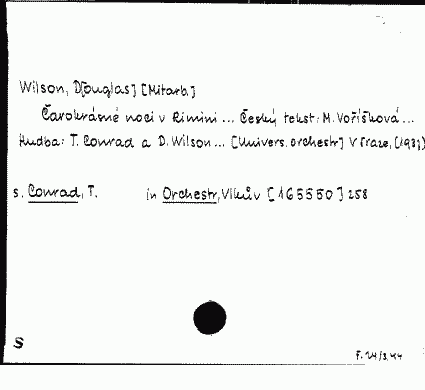 Wilson, D[ouglas] [Mitarb.]
Čarokrásné noci v Rimini ... Český tekst: M. Voříšková ...
Hudba: T. Conrad a D. Wilson ... [Univers. orchestr] V Praze,
s. Conrad, T. in Orchestr, Vlkův [165550] 258
S
F. 24/3.44